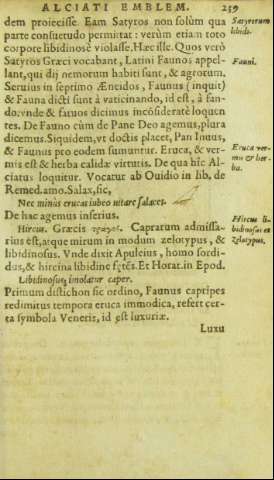 ALCIATI EMBLEM. 259
dem proiecisse. Eam Satyros non solùm qua
parte consuetudo permittat: verùm etiam toto
corpore libidinosè violasse. Hæc ille. Quos verò
Satyros Græci vocabant, Latini Faunos appel-
lant, qui dij nemorum habiti sunt, & agrorum.
Seruius in septimo Æneidos, Faunus (inquit)
& Fauna dicti sunt à vaticinando, id est, à fan-
do: vnde & fatuos dicimus incōsideratè loquen
tes. De Fauno cùm de Pane Deo agemus, plura
dicemus. Siquidem, vt doctis placet, Pan Inuus,
& Faunus pro eodem sumuntur. Eruca, & ver-
mis est & herba calidæ virtutis. De qua hîc Al-
ciatus loquitur. Vocatur ab Ouidio in lib. de
Remed. amo. Salax, sic,
Nec minus erucas iubeo uitare salaces.
De hac agemus inferius.
Hircus. Græcis τράγος. Caprarum admissa-
rius est, atque mirum in modum zelotypus, &
libidinosus. Vnde dixit Apuleius, homo sordi-
dus, & hircina libidine Et Horat. in Epod.
Libidinosus imolatur caper.
Primum distichon sic ordino, Faunus capripes
redimitus tempora eruca immodica, refert cer-
ta symbola Veneris, id est luxuriæ.
Luxu
Satyrorum
libido.
Fauni.
Eruca ver-
mis & her-
ba.
Hircus li-
bidinosus et
zelotypus.